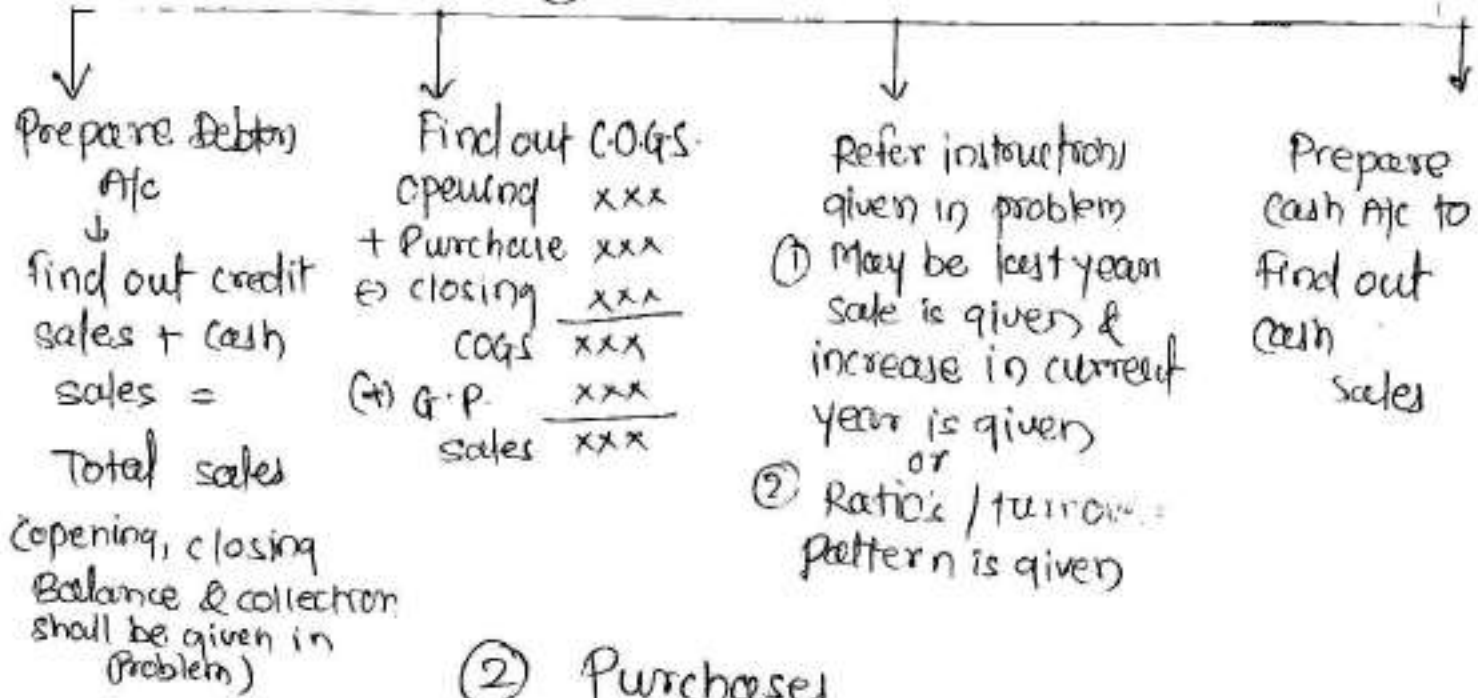 Prepare Debtors
A/c
↓
find out credit
sales + cash
sales =
Total sales
(opening, closing
Balance & collection
shall be given in
Problem)
Find out C.O.G.S.
opening xxx
+ Purchase xxx
(-) closing xxx
COGS xxx
(+) G.P. xxx
sales xxx
Refer instructions
given in problem
① May be last year
sale is given &
increase in current
year is given
or
② Ratio's /
pattern is given
Prepare
Cash A/c to
find out
cash
sales
② Purchases